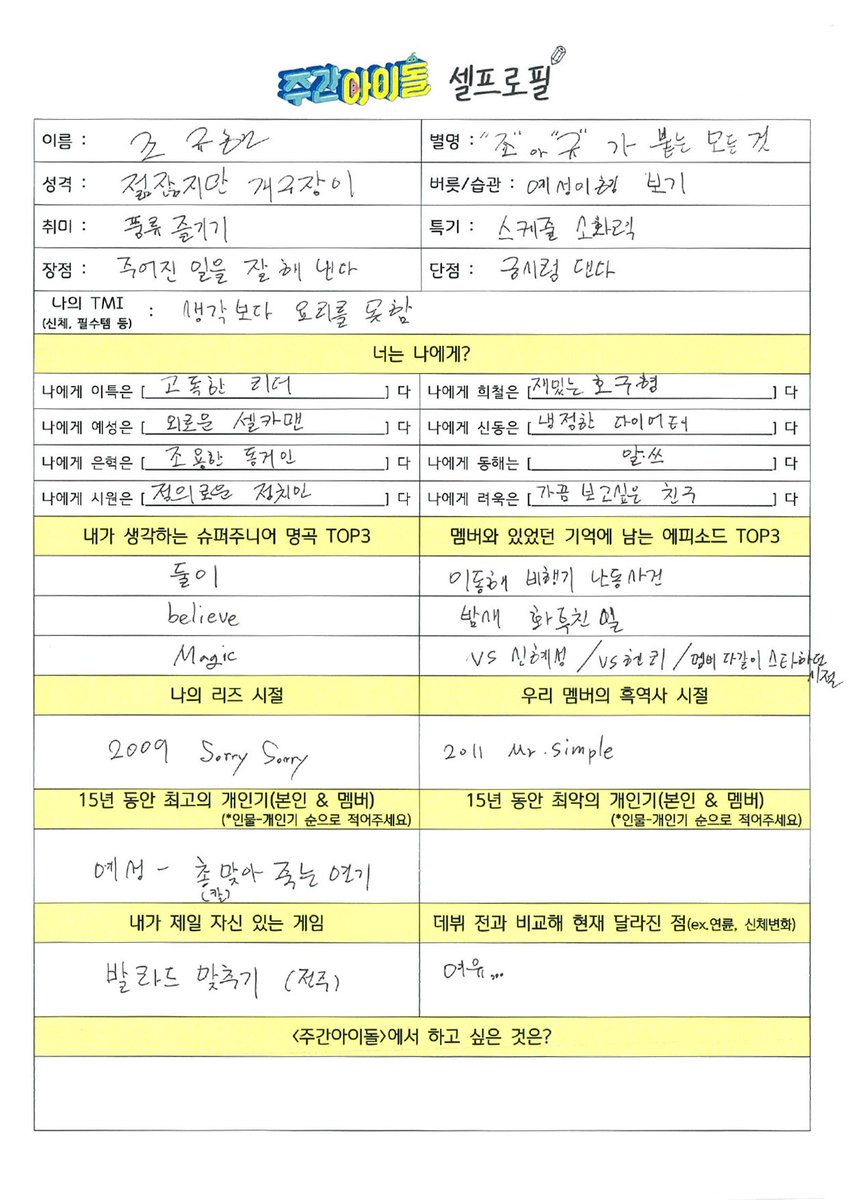 주간아이돌 셀프로필
이름 : 조규현
별명 : "조"아"규"가 붙는 모든 것
성격 : 점잖지만 개구장이
버릇/습관 : 예성이형 보기
취미 : 풍류 즐기기
특기 : 스케줄 소화력
장점 : 주어진 일을 잘 해 낸다
단점 : 궁시렁 댄다
나의 TMI
(신체, 필수템 등) : 생각보다 요리를 못함
너는 나에게?
나에게 이특은 [ 고독한 리더 ] 다
나에게 희철은 [ 재밌는 호구형 ] 다
나에게 예성은 [ 외로운 셀카맨 ] 다
나에게 신동은 [ 냉정한 다이어터 ] 다
나에게 은혁은 [ 조용한 동거인 ] 다
나에게 동해는 [ 말.쓰 ] 다
나에게 시원은 [ 정의로운 정치인 ] 다
나에게 려욱은 [ 가끔 보고싶은 친구 ] 다
내가 생각하는 슈퍼주니어 명곡 TOP3
멤버와 있었던 기억에 남는 에피소드 TOP3
둘이
이동해 비행기 난동사건
believe
밤새 화투친 일
Magic
VS 신혜성 / VS헨리 / 멤버 다같이 스타하던
시절
나의 리즈 시절
우리 멤버의 흑역사 시절
2009 Sorry Sorry
2011 Mr. Simple
15년 동안 최고의 개인기(본인 & 멤버)
(*인물-개인기 순으로 적어주세요)
15년 동안 최악의 개인기(본인 & 멤버)
(*인물-개인기 순으로 적어주세요)
예성 - 총 맞아 죽는 연기
(칼)
내가 제일 자신 있는 게임
데뷔 전과 비교해 현재 달라진 점(ex.연륜, 신체변화)
발라드 맞추기 (전주)
여유...
<주간아이돌>에서 하고 싶은 것은?